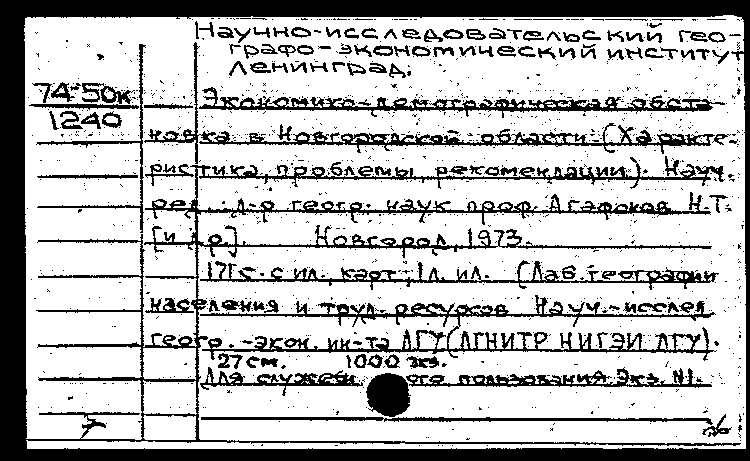 Научно-исследовательский гео-
графо-экономический институт
Ленинград.
74-50к
1240
Экономико-демографическая обста-
новка в Новгородской области (Характе-
ристика, проблемы, рекомендации). Науч.
ред.: д-р геогр. наук проф. Агафонов Н.Т.
[и др.]. Новгород, 1973.
171 с. с ил., карт.; 1 л. ил. (Лаб. географии
населения и труд. ресурсов Науч.-исслед.
геогр.-экон. ин-та ЛГУ (ЛГНИТР НИГЭИ ЛГУ).
27 см. 1000 экз.
Для служебн ого пользования. Экз. №1.